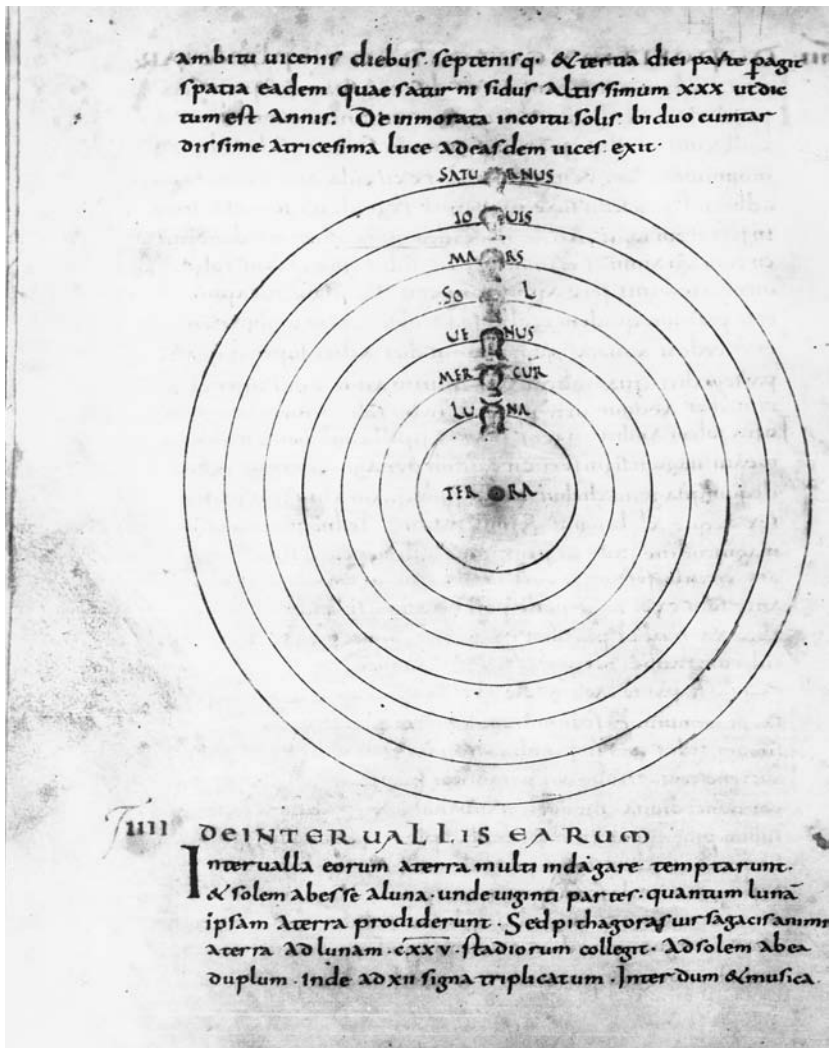 ambitu uicenis diebus. septenisq. & tertia diei parte pagit
spatia eadem quae saturni sidus Altissimum xxx utdic
tum est Annis. Deinmorata incoitu solis biduo cumtar
dissime Atricesima luce Adeasdem uices exit.
SATU RNUS
IO UIS
MA RS
SO L
UE NUS
MER CUR
LU NA
TER RA
IIII DEINTERUALLIS EARUM
Interualla eorum Aterra multi indagare temptarunt.
& solem abesse Aluna. undeuiginti partes. quantum lunā
ipsam Aterra prodiderunt. Sed pithagoras uir sagacis animi
Aterra Adlunam. cxxv. stadiorum collegit. Adsolem abea
duplum. Inde adxii signa triplicatum. Interdum &musica